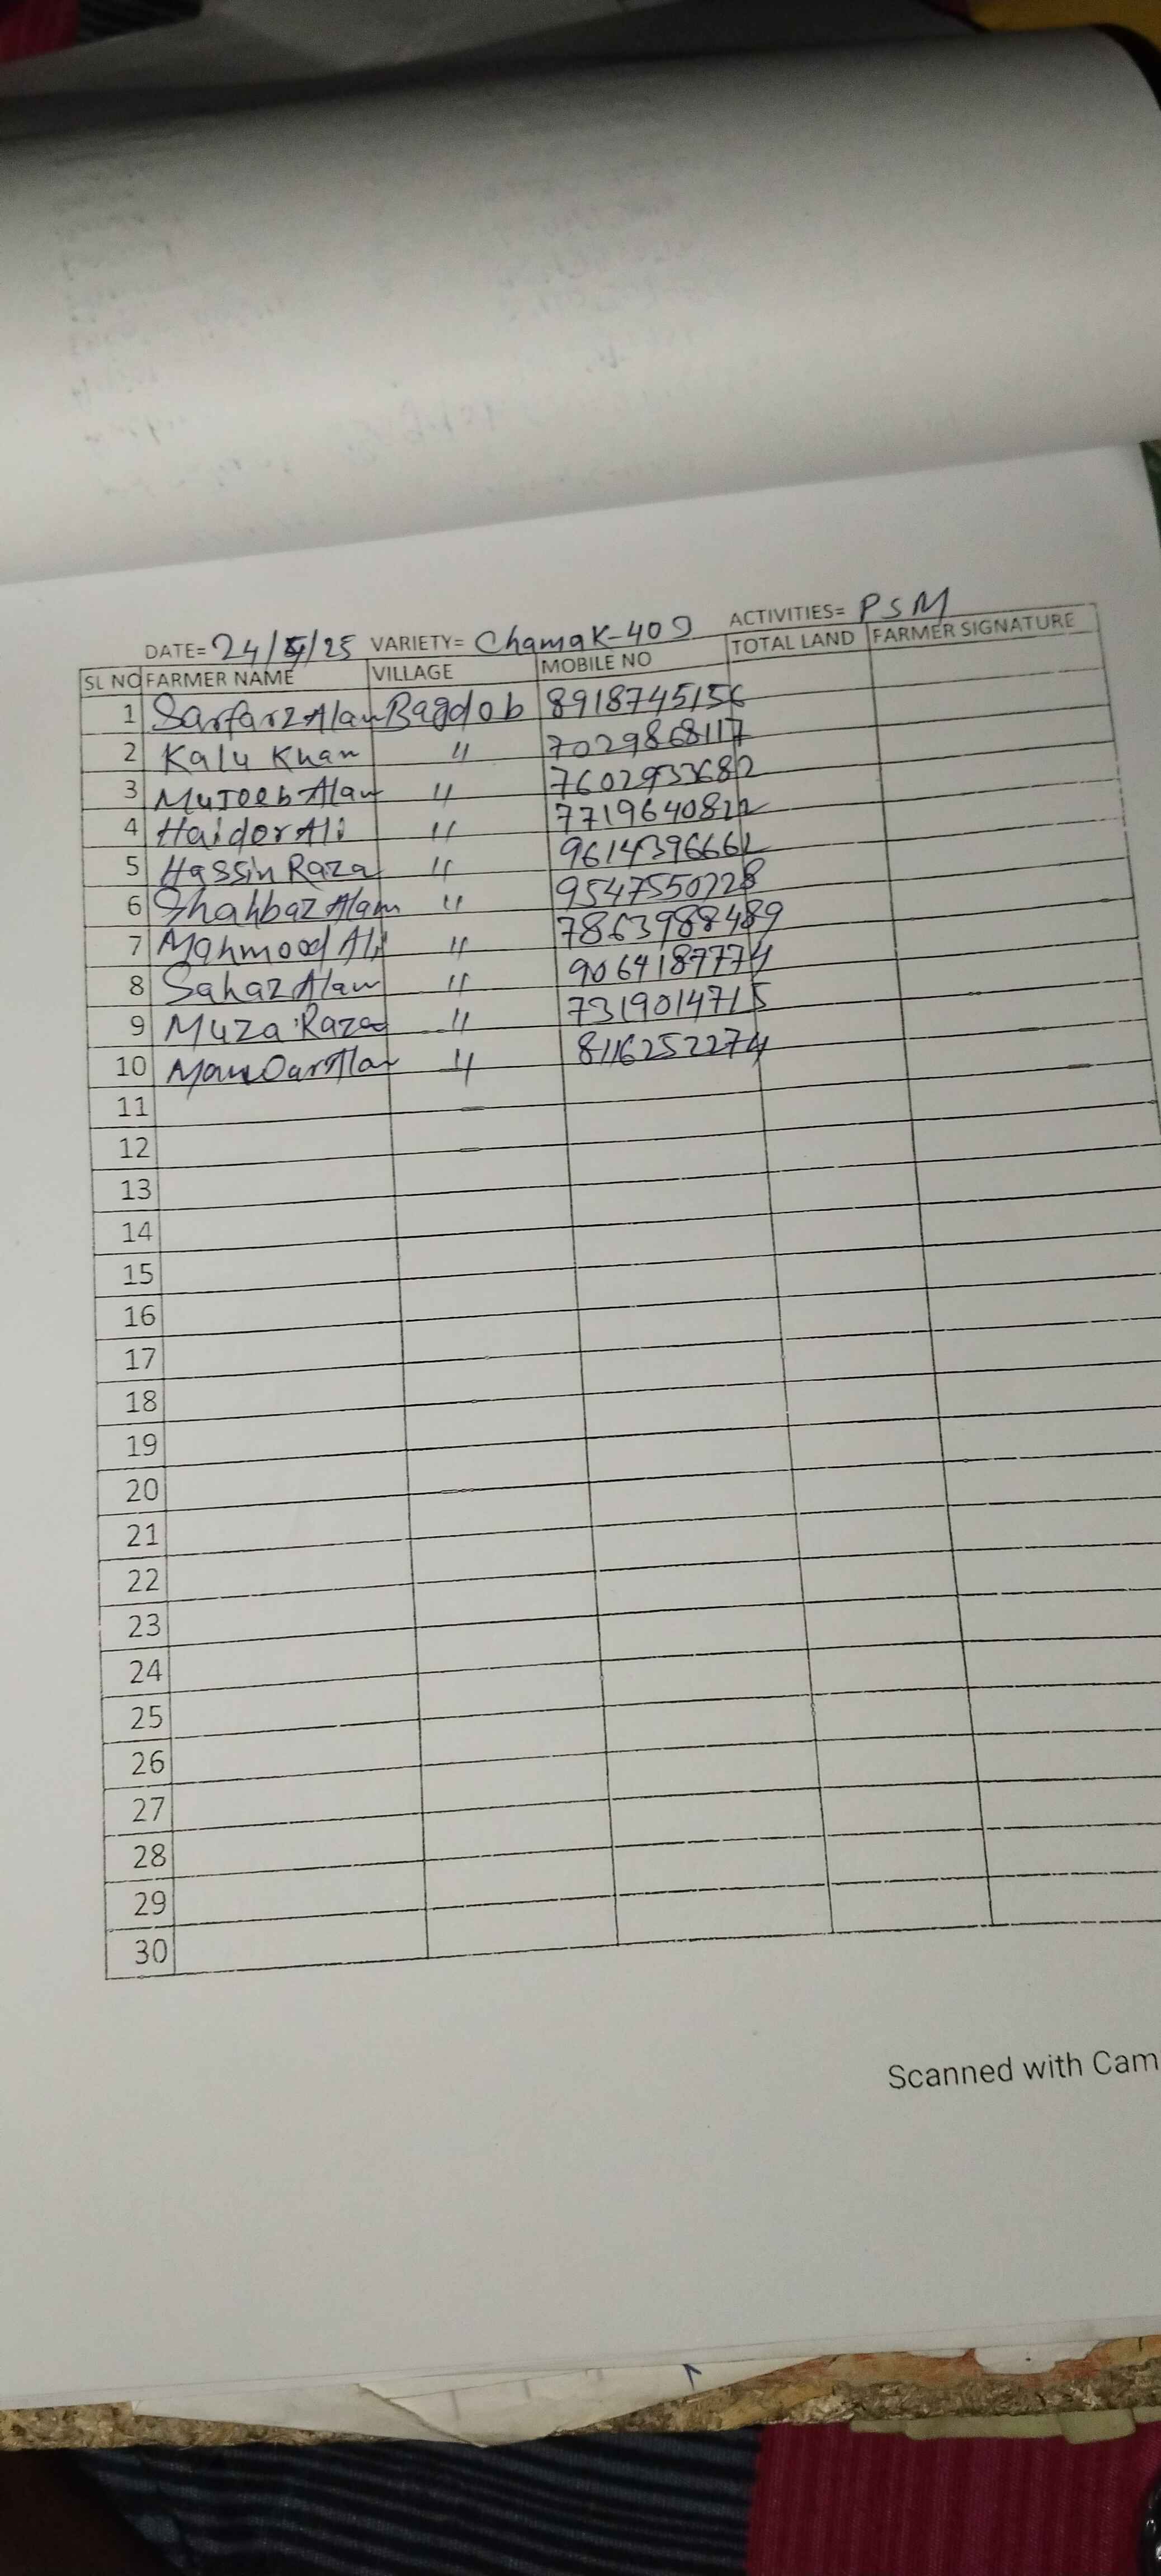 DATE= 24/5/25 VARIETY= Chamak-409 ACTIVITIES= PSM
SL NO FARMER NAME VILLAGE MOBILE NO TOTAL LAND FARMER SIGNATURE
1 Sarfarz Alam Bagdob 8918745156
2 Kalu Khan " 7029868117
3 Mujeeb Alam " 7602933682
4 Haider Ali " 7719640822
5 Hassin Raza " 9614396662
6 Shahbaz Alam " 9547550728
7 Mahmood Ali " 7863988489
8 Sahaz Alam " 9064187774
9 Muza Raza " 7319014715
10 Alam " 8116252274
11
12
13
14
15
16
17
18
19
20
21
22
23
24
25
26
27
28
29
30
Scanned with Cam